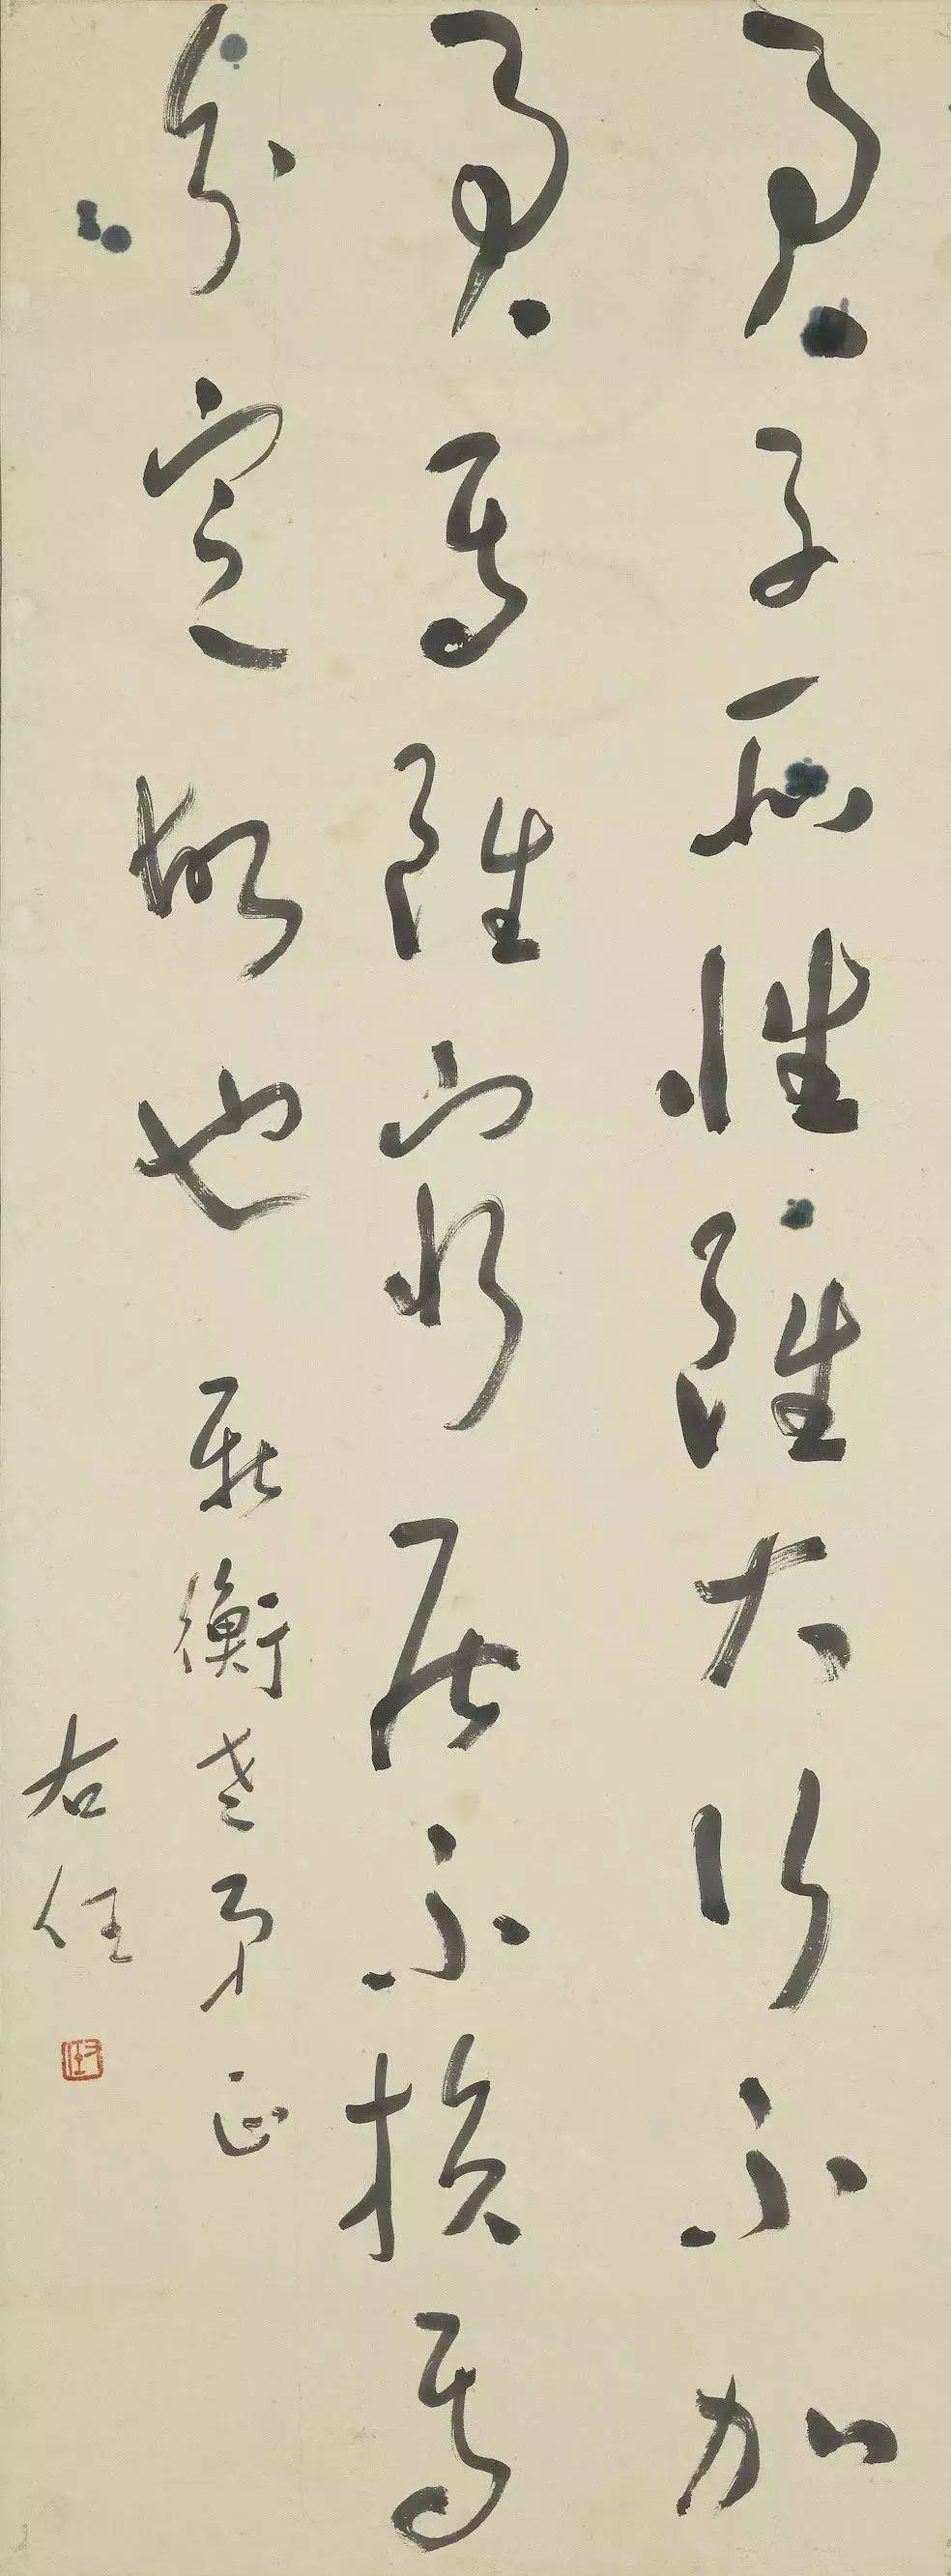 君子所性雖大行不加
君焉雖窮居不損焉
分定故也 新衡老弟正
右任